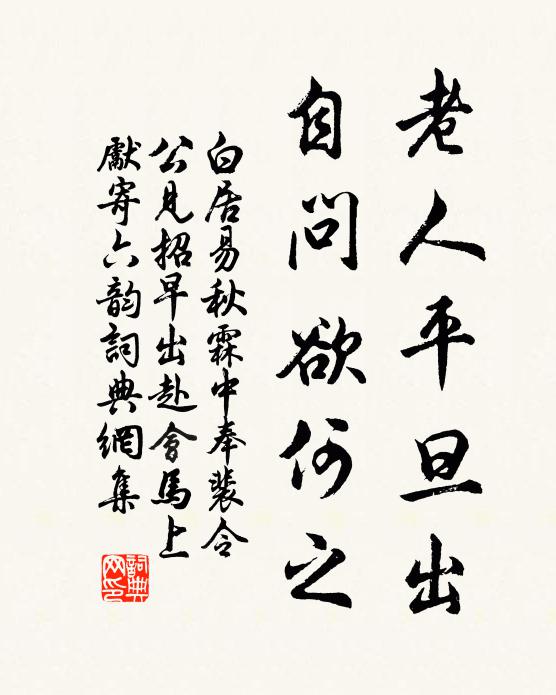 老人平旦出
自問欲何之
白居易秋霖中奉裴令
公見招早出赴會馬上
獻寄六韵詞典網集
詞典網印